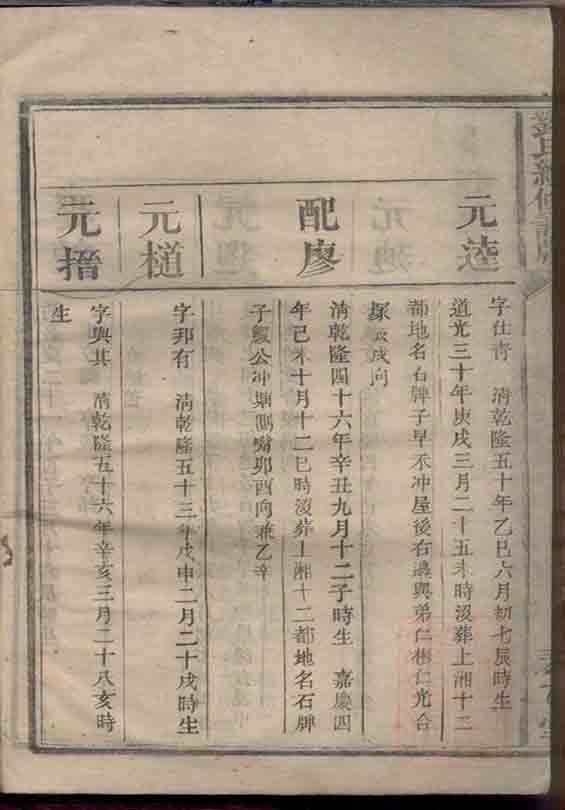 元逵
字仕青 清乾隆五十年乙巳六月初七辰時生
道光三十年庚戌三月二十五未時沒葬上湘十二
都地名石牌子早禾冲屋後右邊與弟仁彬仁光合
塚 戌向
配廖
清乾隆四十六年辛丑九月十二子時生 嘉慶四
年己未十月十二巳時沒葬上湘十二都地名石牌
子 公冲塘側嘴卯酉向兼乙辛
元槌
字邦有 清乾隆五十三年戊申二月二十戌時生
元搢
字興其 清乾隆五十六年辛亥三月二十八亥時
生